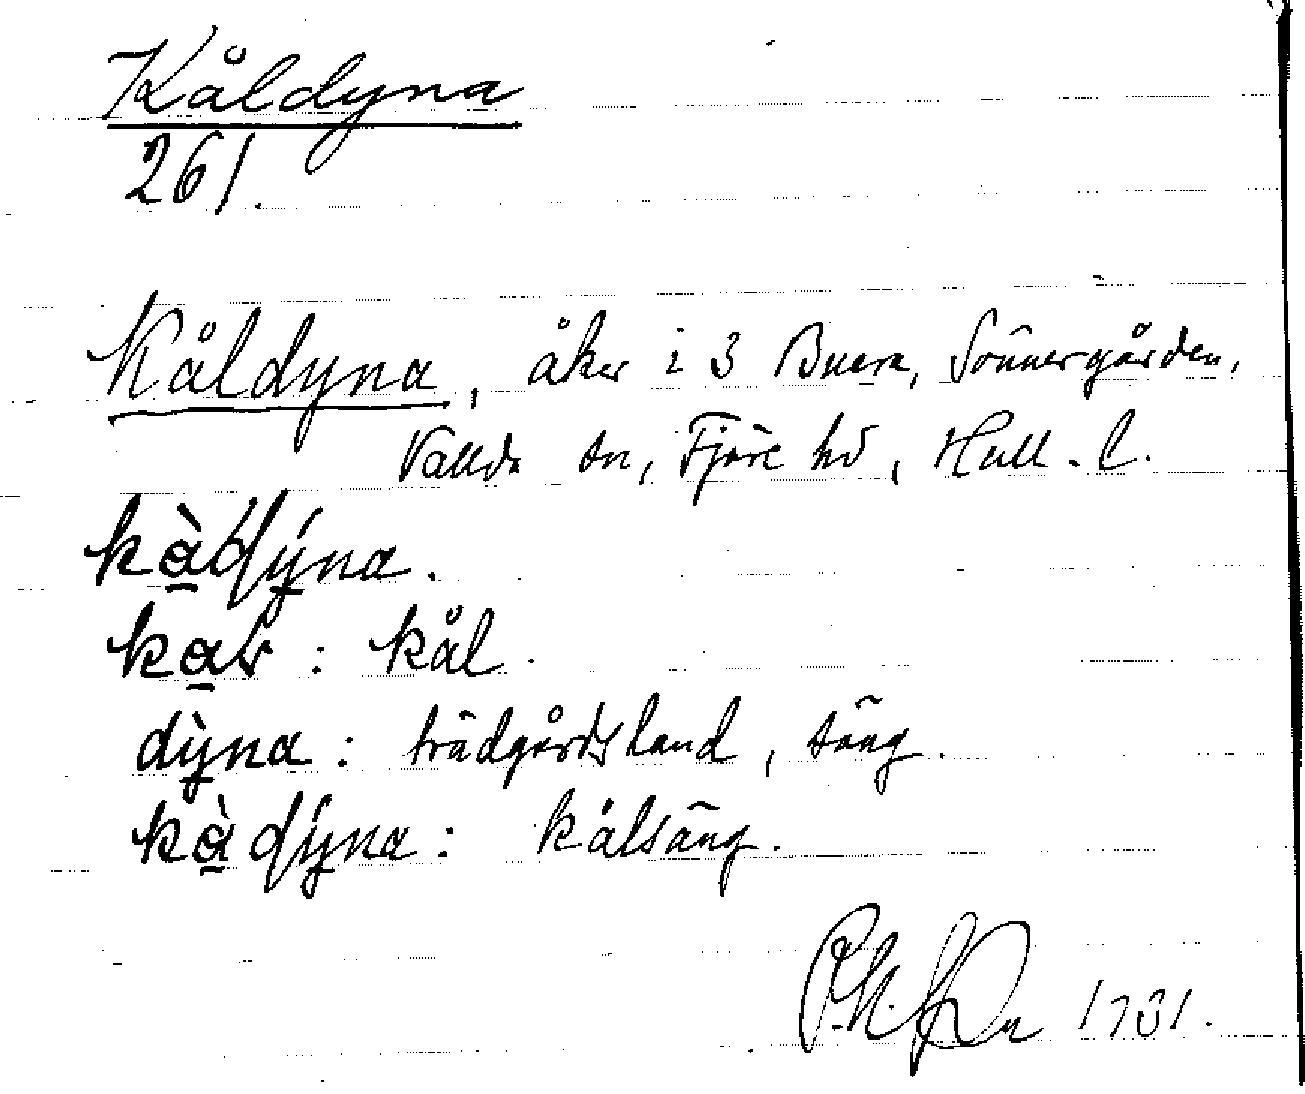 Kåldyna
261.
Kåldyna, åker i 3 Buera, Sönnergården,
Vallda sn, Fjäre hd, Hall. l.
kàdýna.
kaɽ : kål.
dỳna : trädgårdsland, säng.
kàdýna : kålsäng.
1931.